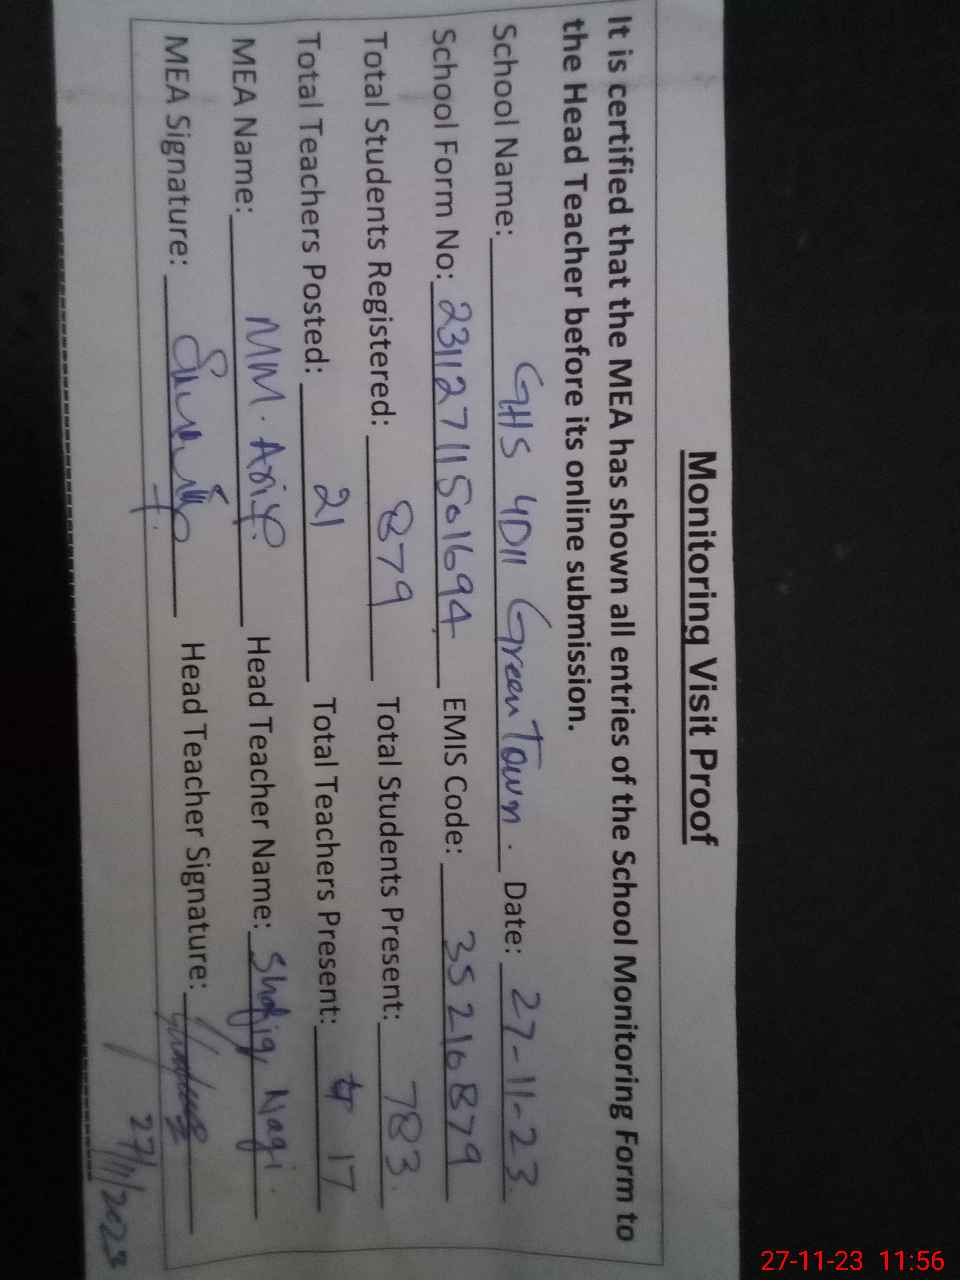 Monitoring Visit Proof
It is certified that the MEA has shown all entries of the School Monitoring Form to
the Head Teacher before its online submission.
School Name: GHS 4D11 Green Town. Date: 27-11-23
School Form No: 23112711501694 EMIS Code: 35210879
Total Students Registered: 879 Total Students Present: 783
Total Teachers Posted: 21 Total Teachers Present: 17
MEA Name: MM. Arif Head Teacher Name: Nagi
MEA Signature: Head Teacher Signature:
27/11/2023
27-11-23 11:56